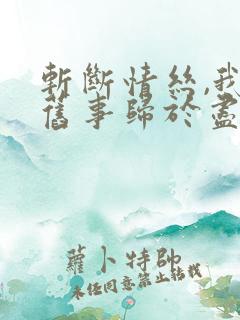 斬斷情絲,我
舊事歸於盡
蘿卜特帥
未任同意禁止转载